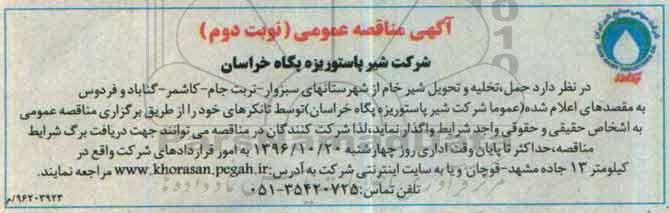 آگهی مناقصه عمومی (نوبت دوم)
شرکت شیر پاستوریزه پگاه خراسان
در نظر دارد حمل،تخلیه و تحویل شیر خام از شهرستانهای سبزوار-تربت جام-کاشمر-گناباد و فردوس
به مقصدهای اعلام شده(عموما شرکت شیر پاستوریزه پگاه خراسان)توسط تانکرهای خود را از طریق برگزاری مناقصه عمومی
به اشخاص حقیقی و حقوقی واجد شرایط واگذار نماید،لذا شرکت کنندگان در مناقصه می توانند جهت دریافت برگ شرایط
مناقصه،حداکثر تا پایان وقت اداری روز چهارشنبه ۱۳۹۶/۱۰/۲۰ به امور قراردادهای شرکت واقع در
کیلومتر ۱۳ جاده مشهد-قوچان و یا به سایت اینترنتی شرکت به آدرس:www.khorasan.pegah.ir مراجعه نمایند.
تلفن تماس:۳۵۴۲۰۷۲۵-۰۵۱
۹۶۲۰۳۹۲۳/م